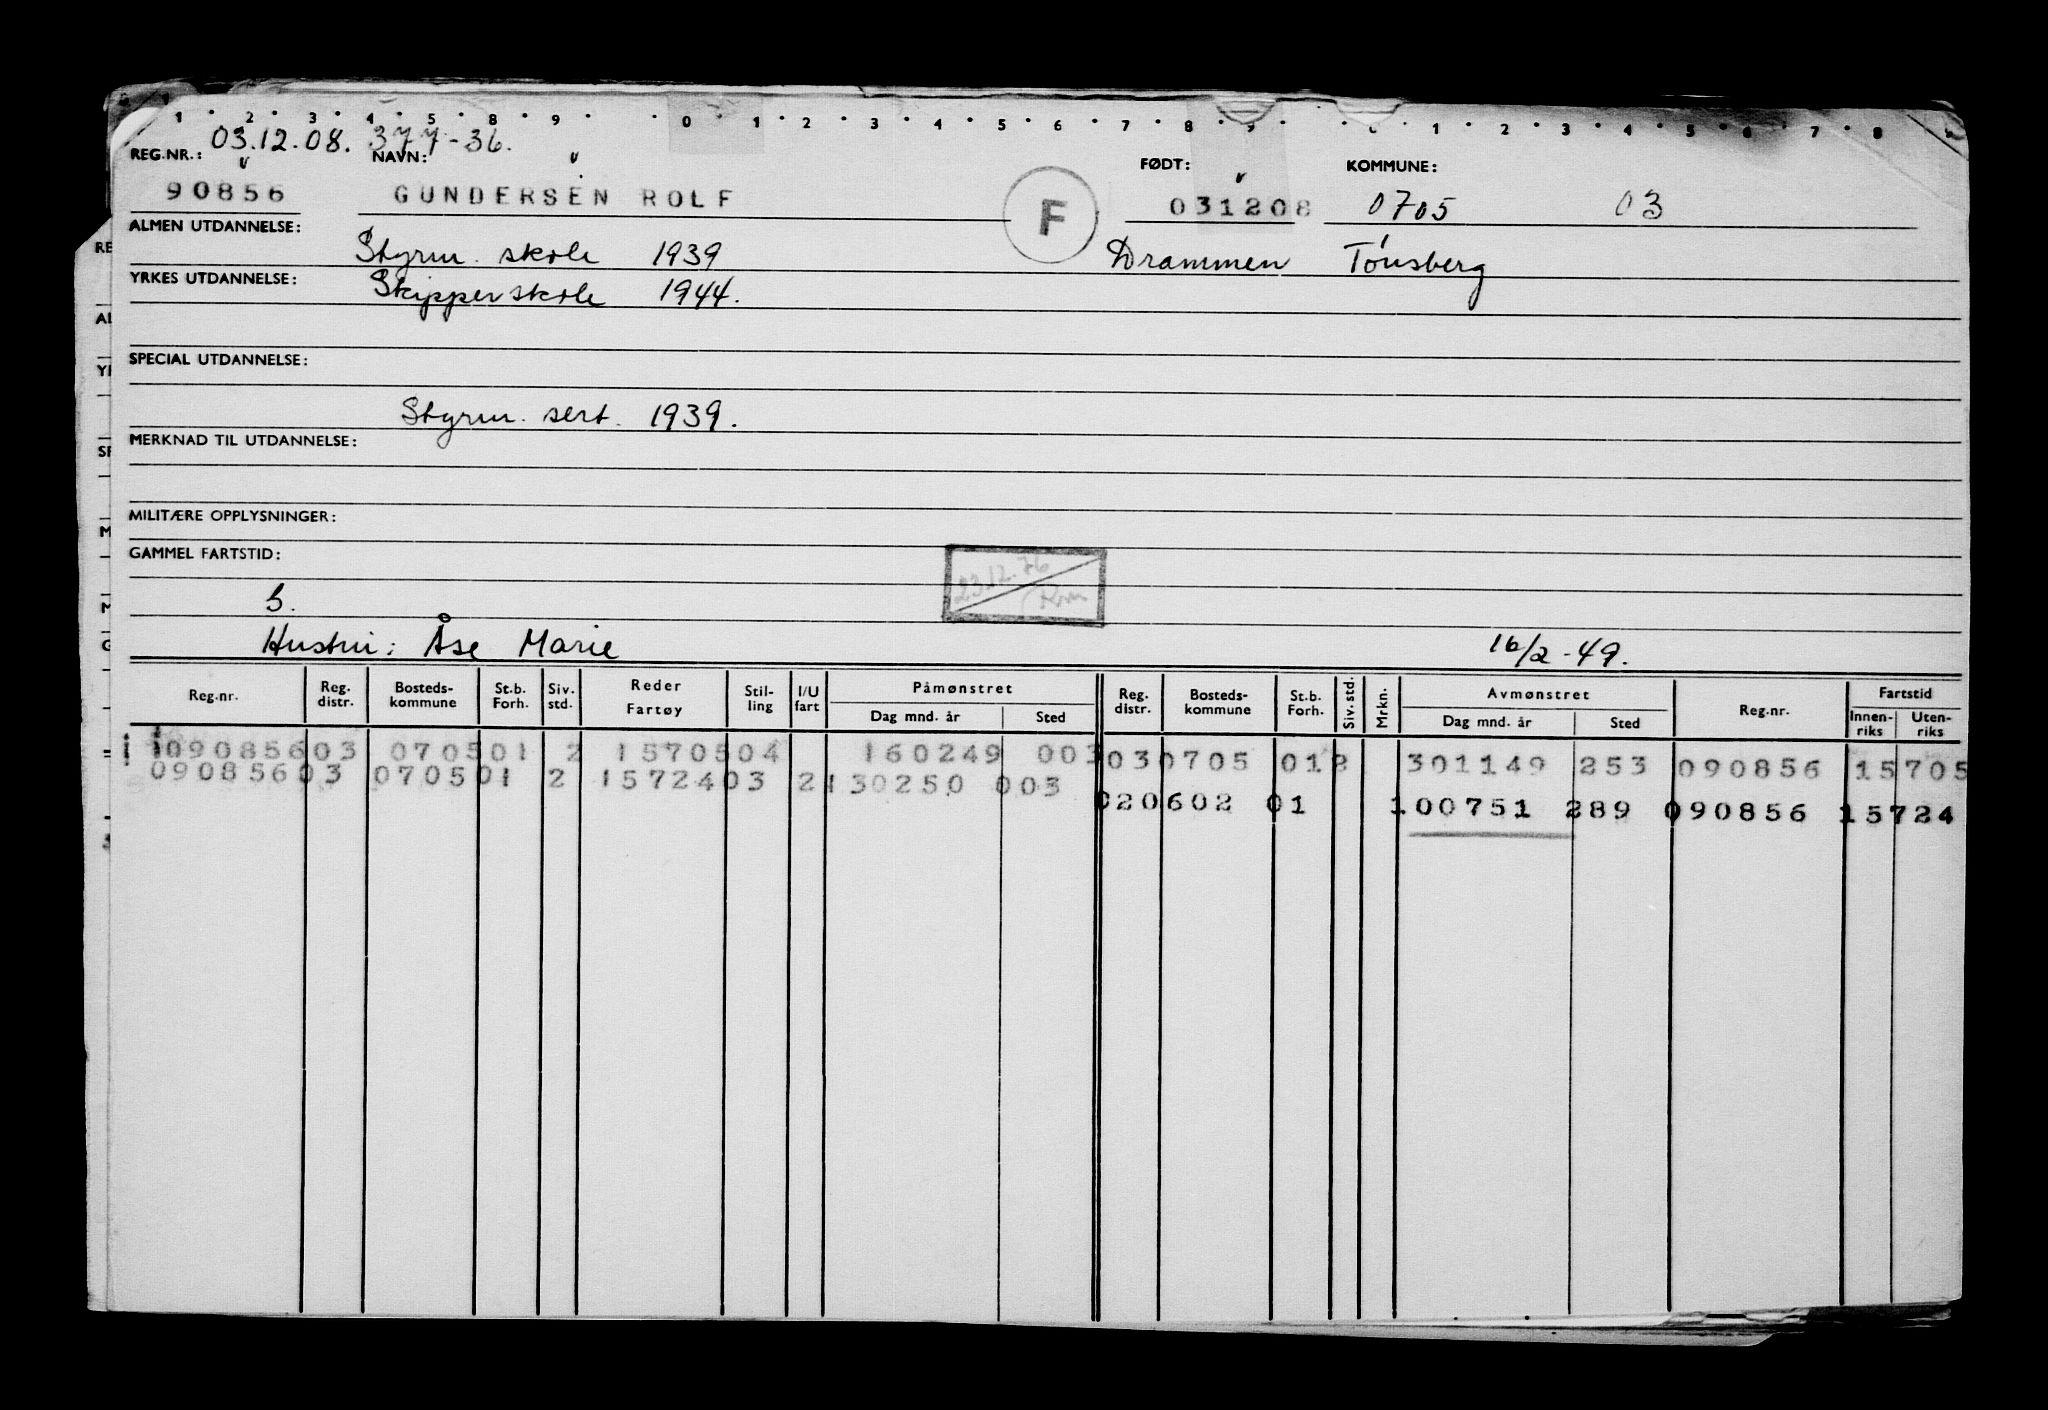 1 2 3 4 5 8 9 0 1 2 3 4 5 6 7 8 9 1 2 3 4 5 6 7 8
03.12.08. 377-36.
REG.NR.: NAVN: FØDT: KOMMUNE:
90856 GUNDERSEN ROLF F 031208 0705 03
ALMEN UTDANNELSE:
Styrm. skole 1939 Drammen Tønsberg
YRKES UTDANNELSE: Skipperskole 1944.
SPECIAL UTDANNELSE:
Styrm. sert. 1939.
MERKNAD TIL UTDANNELSE:
MILITÆRE OPPLYSNINGER:
GAMMEL FARTSTID:
23.12.76
S.
Hustru: Åse Marie 16/2-49.
Reg.nr. Reg. distr. Bosteds-kommune St.b. Forh. Siv. std. Reder Fartøy Stil-ling I/U fart Påmønstret Dag mnd. år Sted Reg. distr. Bosteds-kommune St.b. Forh. Siv. std. Mrkn. Avmønstret Dag mnd. år Sted Reg.nr. Fartstid Innen-riks Uten-riks
09085603 070501 2 1570504 160249 003 030705 012 301149 253 090856 15705
09085603 070501 2 1572403 2130250 003
020602 01 100751 289 090856 15724